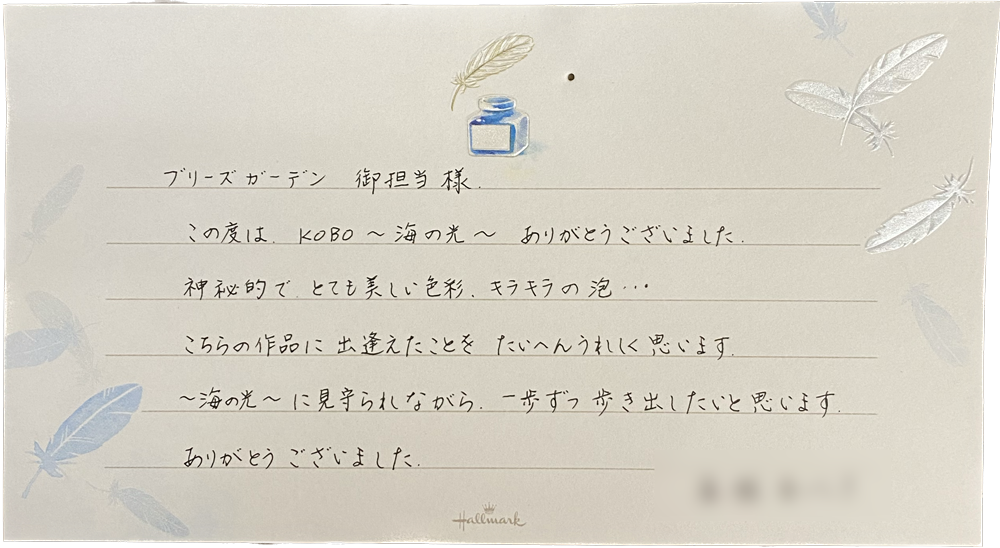 ブリーズガーデン 御担当様.
この度は. KOBO 〜海の光〜 ありがとうございました.
神秘的で. とても美しい色彩. キラキラの泡・・・
こちらの作品に 出逢えたことを たいへんうれしく思います.
〜海の光〜 に見守られながら. 一歩ずつ 歩き出したいと思います.
ありがとう ございました.
Hallmark